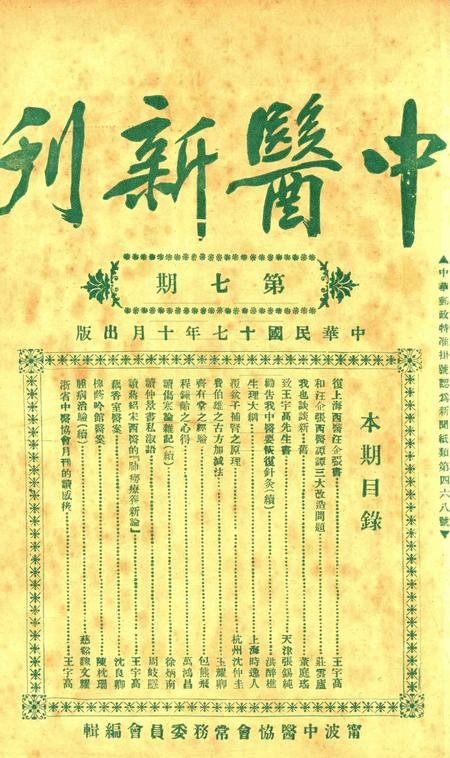 中醫新刊
第七期
中華民國十七年十月出版
▲中華郵政特准掛號認爲新聞紙類第四六八號▼
本期目錄
復上海西醫汪企張書 王宇高
和汪企張西醫譚譚三大改造問題 莊雲廬
我也談談新舊 董庭瑤
致王宇高先生書 天津張錫純
勸告我中醫要恢復針灸(續) 洪醉樵
生理大綱 上海時逸人
覆盆子補腎之原理 杭州沈仲圭
費伯雄之古方加減法 王耀卿
齊有堂之經驗 包熊飛
程鍾齡之心得 萬鴻昌
讀傷寒論雜記(續) 徐炳南
讀仲景書私淑語 周岐隱
讀蔣紹宋西醫的『肺癆療養新論』 王宇高
藕香室醫案 沈良卿
槐蔭吟館醫案 陳枕珊
腫病治論(續) 慈谿魏文耀
浙省中醫協會月刊的讀感後 王宇高
甯波中醫協會常務委員會編輯